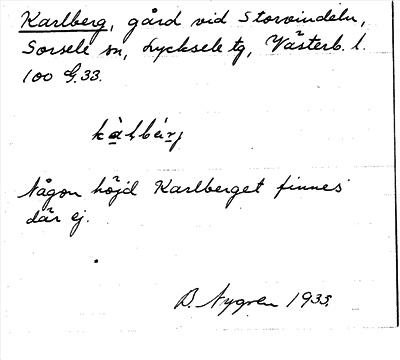 Karlberg, gård vid Storvindeln,
Sorsele sn, Lycksele tg, Västerb. l.
100 G. 33.
Någon höjd Karlberget finnes
där ej.
B. Nygren 1935.